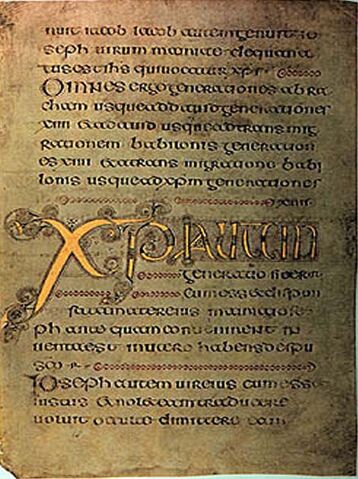 nuit iacob Iacob autem genuit io
seph uirum mariae de qua na
tus est ihs qui uocatur xps
Omnes ergo generationes abra
cham usque ad dauid generationes
xiiii Ea dauid usque ad trans mig
rationem babilonis generation
es xiiii Ea trans migratione babi
lonis usque ad xpm generationes
xiiii
XPI autem
generatio sic erat
Cum esset disponsata
mater eius maria iose
ph ante quam conuenirent in
uenta est in utero habens de spu
sco
Ioseph autem uir eius cum esset
iustus & nollet eam traducere
uoluit occulte dimittere eam